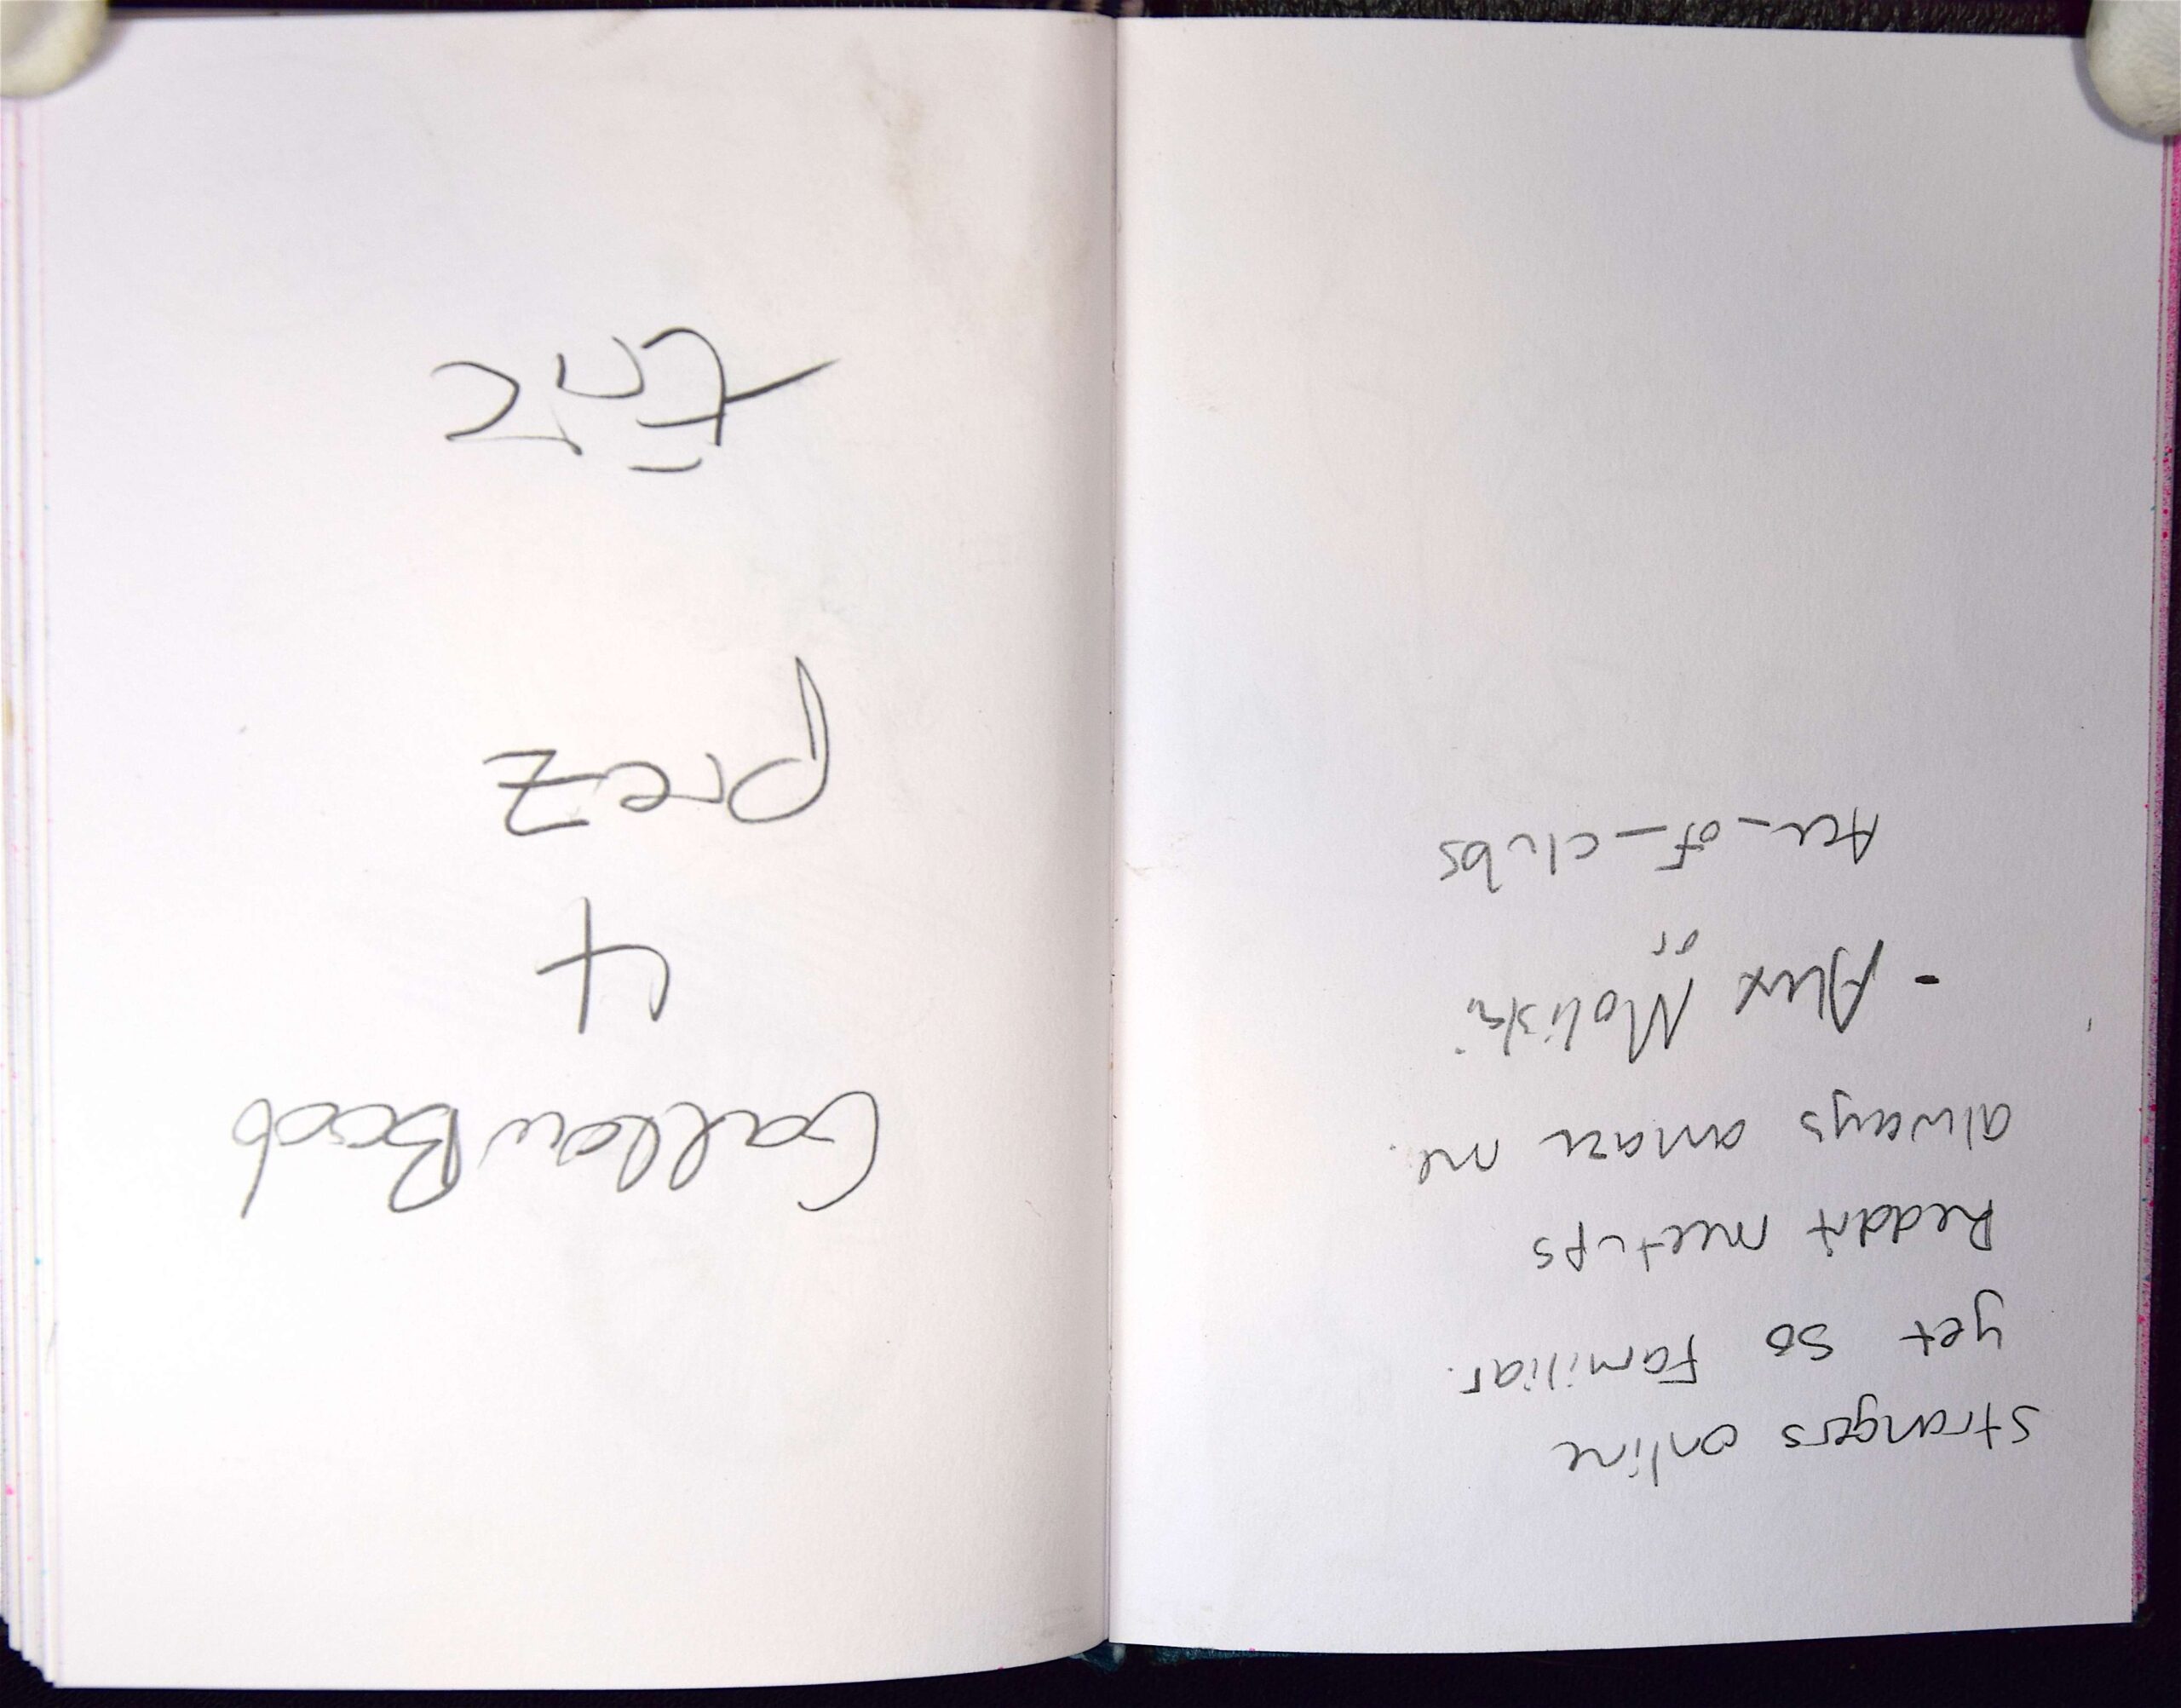 Strangers online
yet so familiar.
Reddit meetups
always amaze me.
- Alex
or
Ace_of_clubs
GallowBoob
4
prez